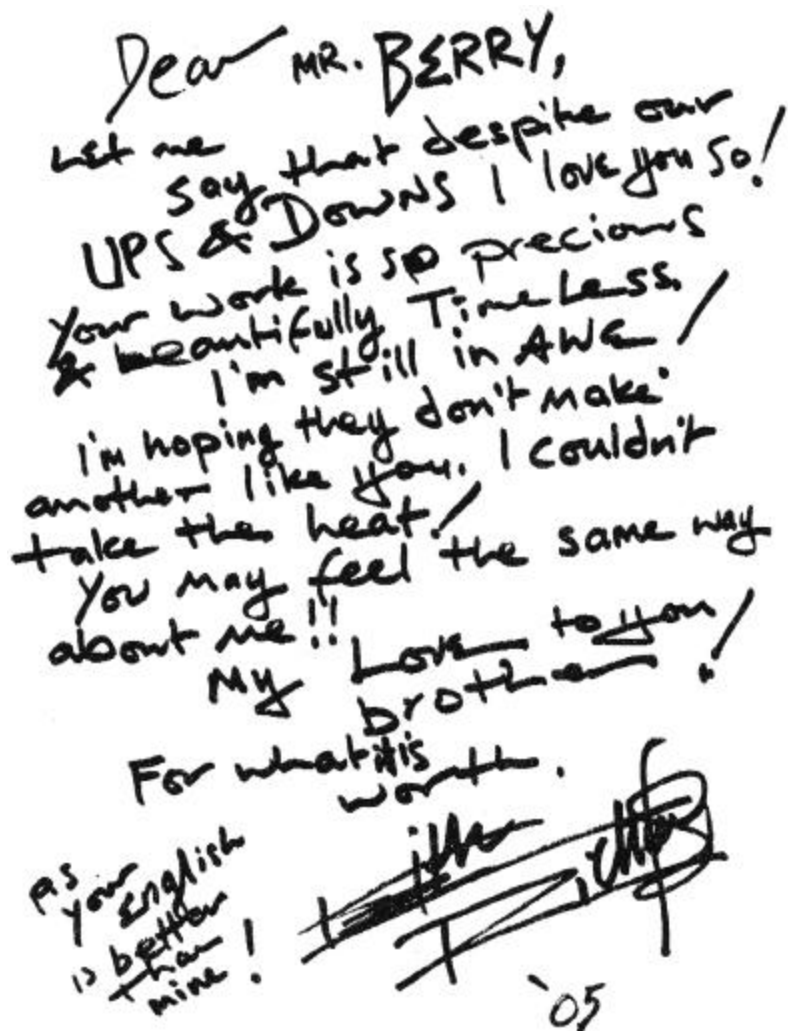 Dear MR. BERRY,
Let me
say, that despite our
UPS & DOWNS I love you so!
Your work is so precious
& beautifully TimeLess.
I'm still in AWE!
I'm hoping they don't make
another like you. I couldn't
take the heat!
You may feel the same way
about me!!
My Love to you
brother!
For what it is
worth.
As
your
English
is better
than
mine!
'05